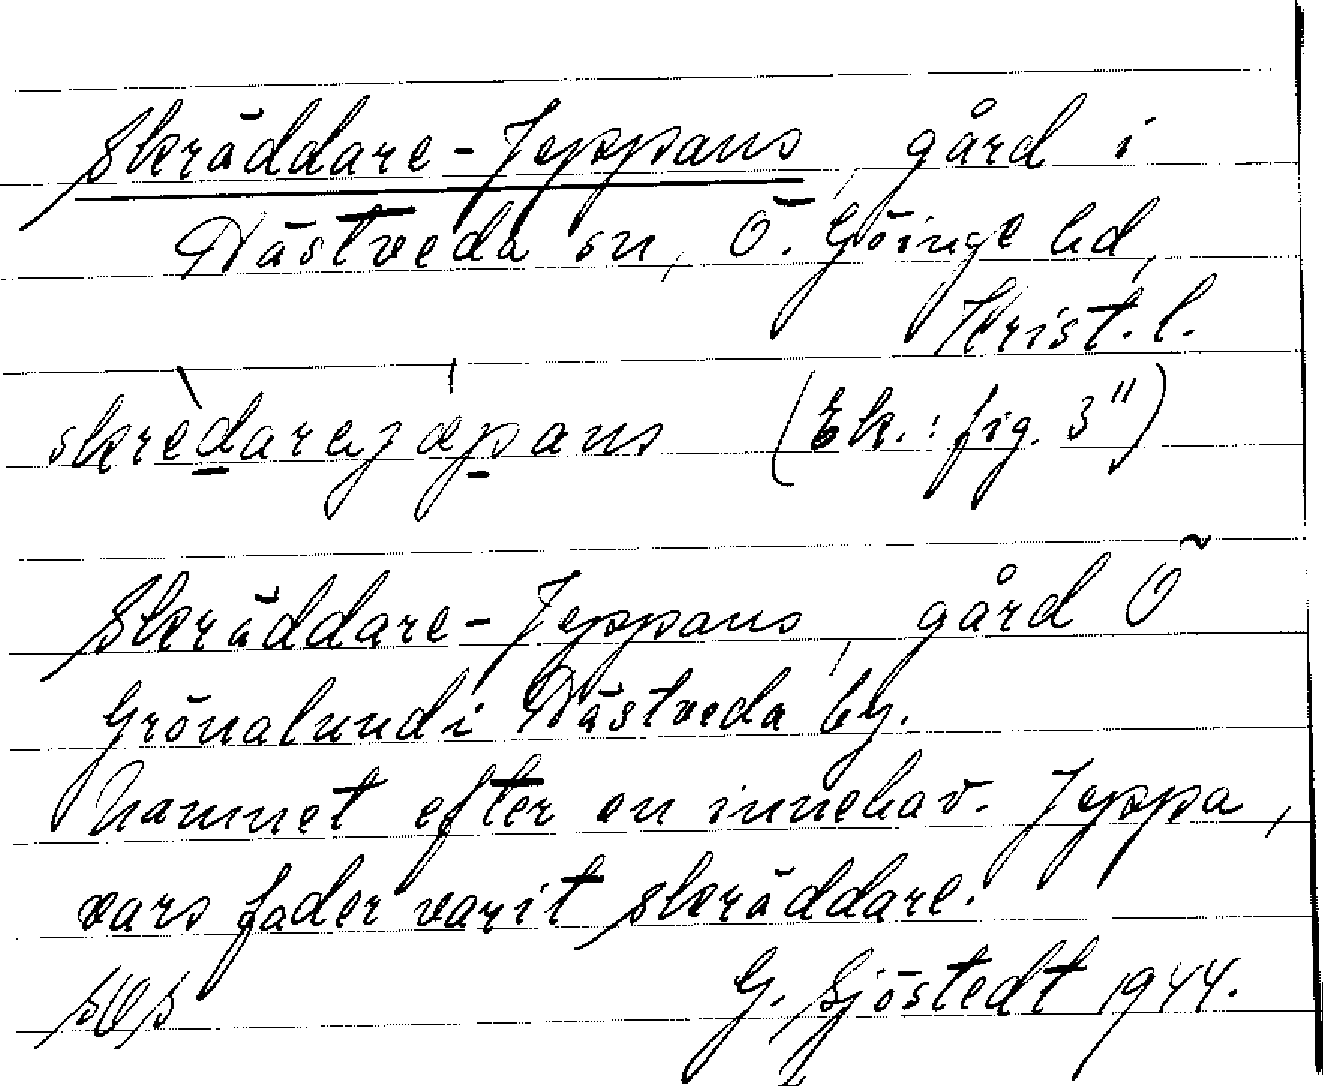 Skräddare-Jeppans, gård i
Nästveda sn, Ö. Göinge hd,
Krist. l.
skrèdarejæpans (Ek.: fig. 3")
Skräddare-Jeppans, gård Ö
Grönalund i Nästveda by.
Namnet efter en innehav. Jeppa,
vars fader varit skräddare.
G. Sjöstedt 1944.